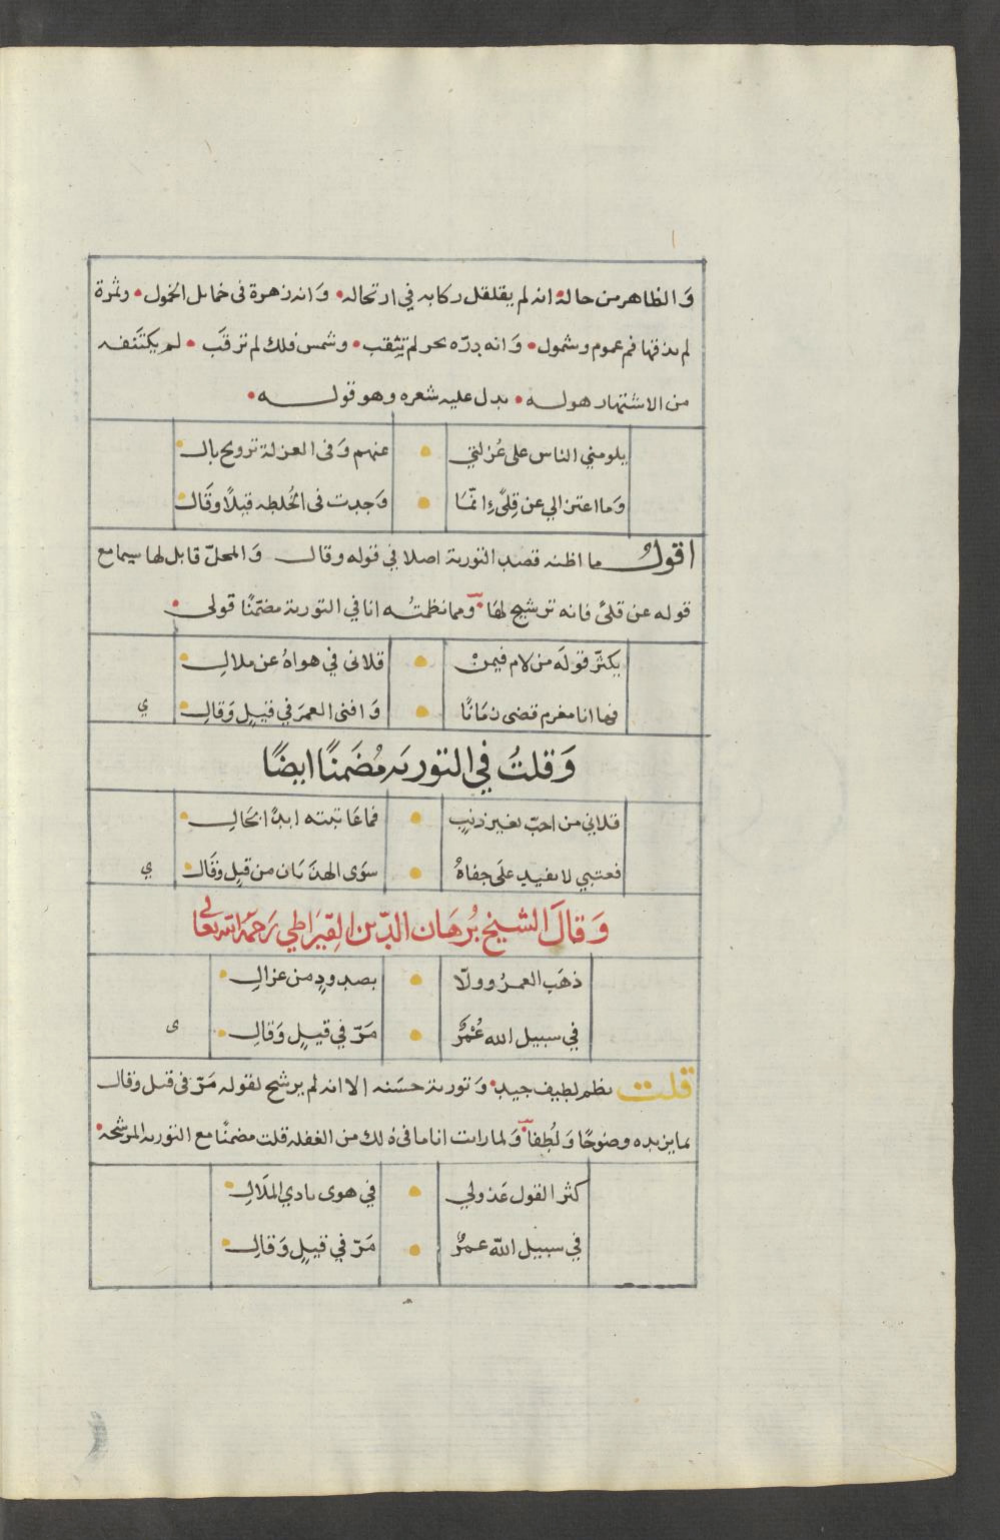 وَالظاهر من حاله انه لم يقلقل ركابه في ارتحاله • وَانه زهرة فى خمايل الخمول • وثمرة
لم يذقها فم عموم وشمول • وَانه درّه بحر لم تثقب • وشمس فلك لم ترقَب • لم يكتنفه
من الاشتهار هوله • يدل عليه شعره وهو قوله •
يلومني الناس على عُزلتي • عنهم وَفى العزلة ترويح بال
وَما اعتزالي عن قِلىً اِنّما • وَجدت فى الخُلطه قيلًا وقَال
اقولُ ما اظنه قصد التورية اصلا في قوله وقال وَالمحلّ قابل لها سيما مع
قوله عن قلىً فانه ترشيح لها • ومما نظمتُه انا في التورية مضمّنًا قولى •
يكثّر قولَه من لام فيمنْ • قلانى في هواهُ عن ملالِ
فها انا مغرم قضى زمَانًا • وَافنى العمرَ في قيلٍ وَقالِ ي
وَقلتُ في التوريه مُضَمنًا ايضًا
قلاني من احبّ بغير ذنبٍ • فما عَاتبته ابدًا بحَالِ
فعتبي لا يفيد علَى جفاهُ • سوَى الهذيَان من قيلٍ وقَال ي
وَقالَ الشيخ بُرهَان الدّين القِيرَاطي رَحمَهُ الله تعالى
ذهَب العمرُ وولّا • بصدودٍ من غزالِ
في سبيل الله عُمْرٌ • مَرّ في قيلٍ وَقالِ ى
قلت نظم لطيف جيد • وَتورية حسَنه إلا انه لم يرشح لقوله مَرّ فى قيل وقال
بما يزيده وضوحًا وَلُطفا • وَلما رايت انا ما فى ذلك من الغفله قلت مضمنًا مع التوريه المرشحه •
كثر القول عَذولي • في هوى بادي الملَالِ
في سبيل اللّه عمرٌ • مَرّ في قيلٍ وَقالِ